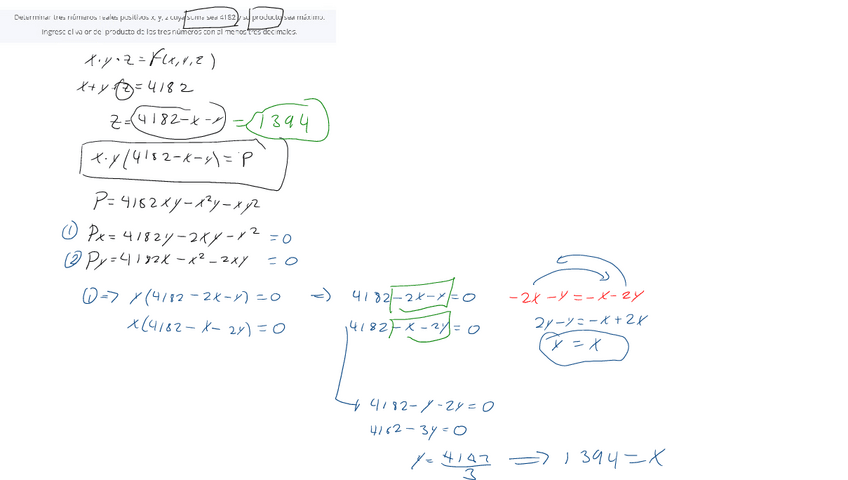 Determinar tres números reales positivos x, y, z cuya suma sea 4182 y su producto sea máximo.
Ingrese el valor del producto de los tres números con al menos tres decimales.
x·y·z = F(x,y,z)
x+y+z = 4182
z = 4182-x-y = 1394
x·y(4182-x-y) = P
P = 4182xy-x²y-xy²
① Px = 4182y-2xy-y² = 0
② Py = 4182x-x²-2xy = 0
① => y(4182-2x-y) = 0 => 4182-2x-y = 0
x(4182-x-2y) = 0
4182-x-2y = 0
-2x-y = -x-2y
2y-y = -x+2x
y = x
4182-y-2y = 0
4182-3y = 0
y = 4182/3 => 1394 = x